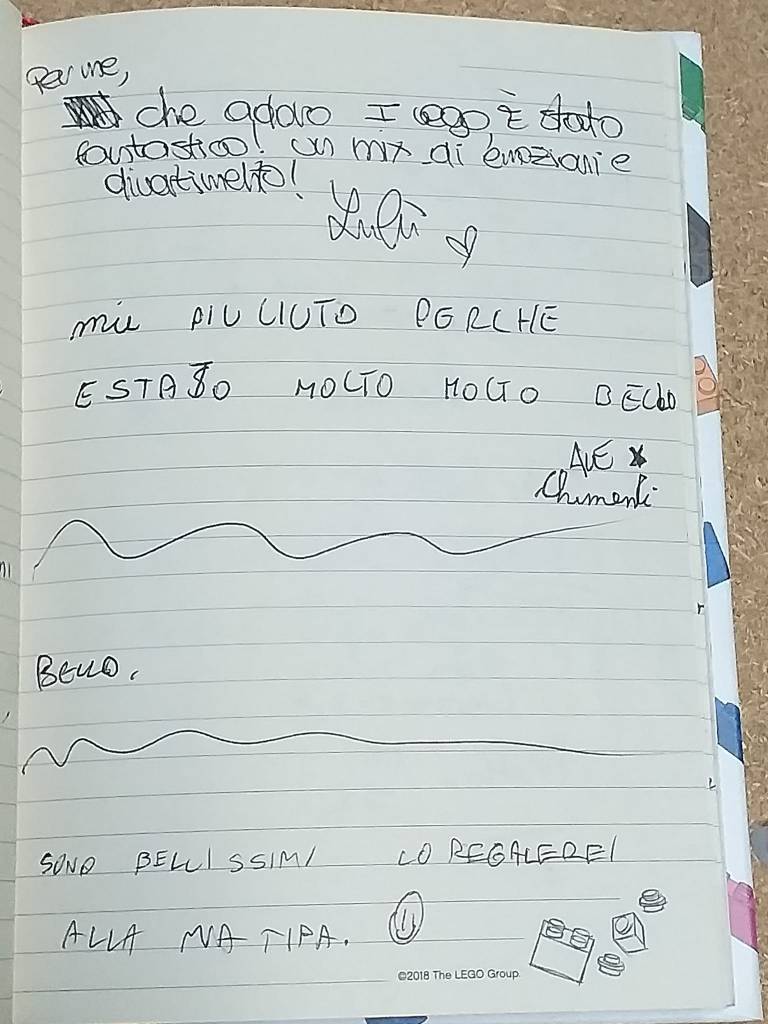 Per me,
che adoro I Lego, È stato
fantastico! Un mix di emozioni e
divertimento!
Lulù
mie PIU LIUTO PERCHE
ESTATO MOLTO MOLTO BELLO
ALE
Chimenti
BELLO.
SONO BELLISSIMI LO REGALEREI
ALLA MIA TIPA.
©2018 The LEGO Group.